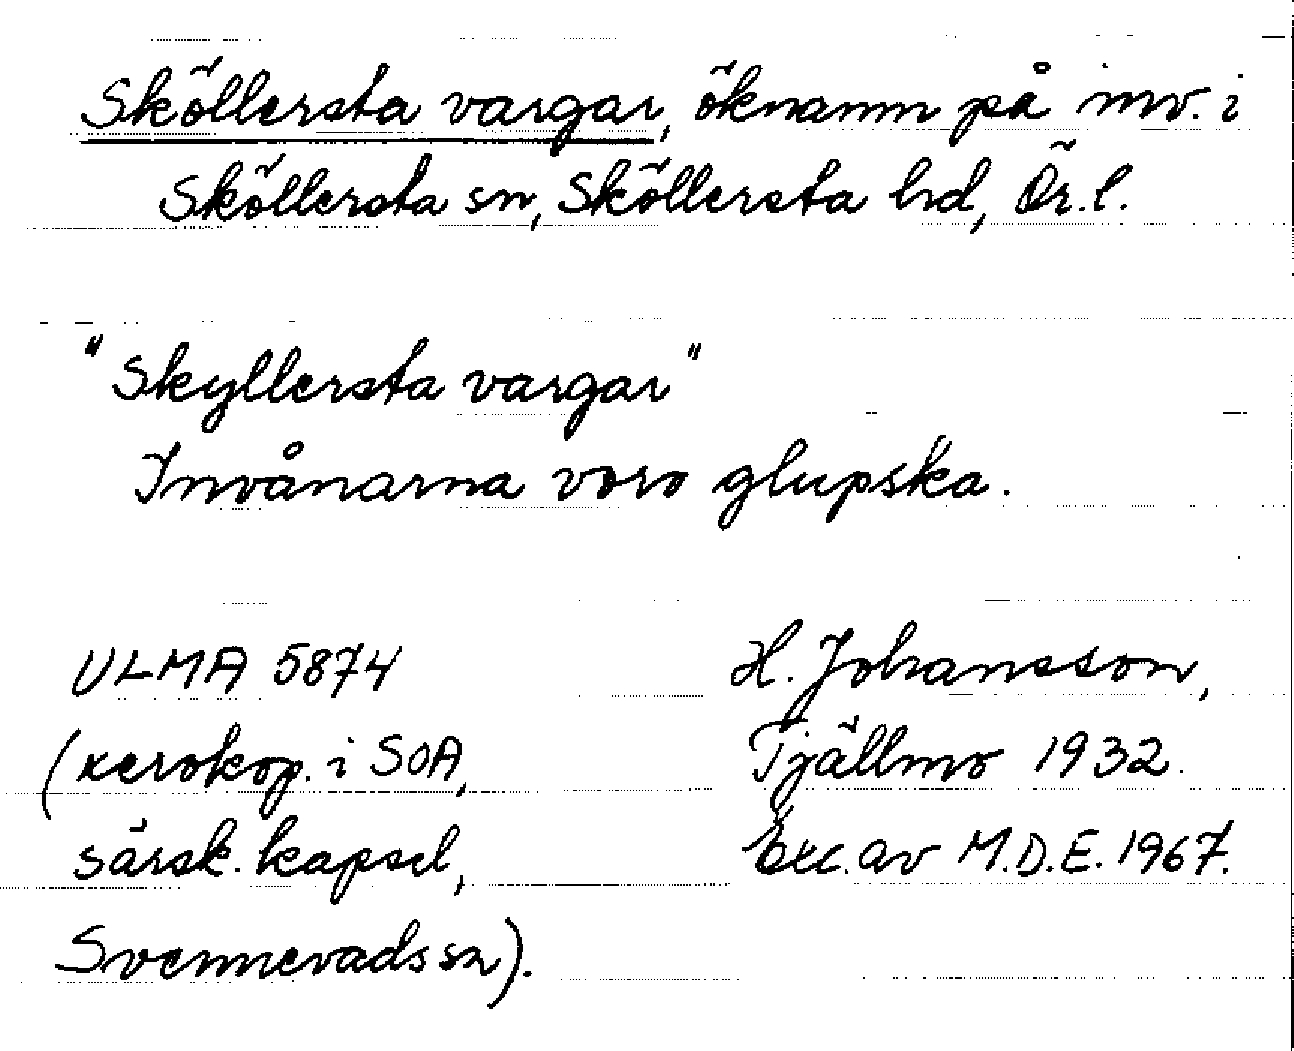 Sköllersta vargar, öknamn på inv. i
Sköllersta sn, Sköllersta hd, Ör.l.
"Skyllersta vargar"
Invånarna voro glupska.
ULMA 5874
(xerokop. i SOA,
särsk. kapsel,
Svennevads sn).
H. Johansson,
Tjällmo 1932.
Exc. av M.D.E. 1967.